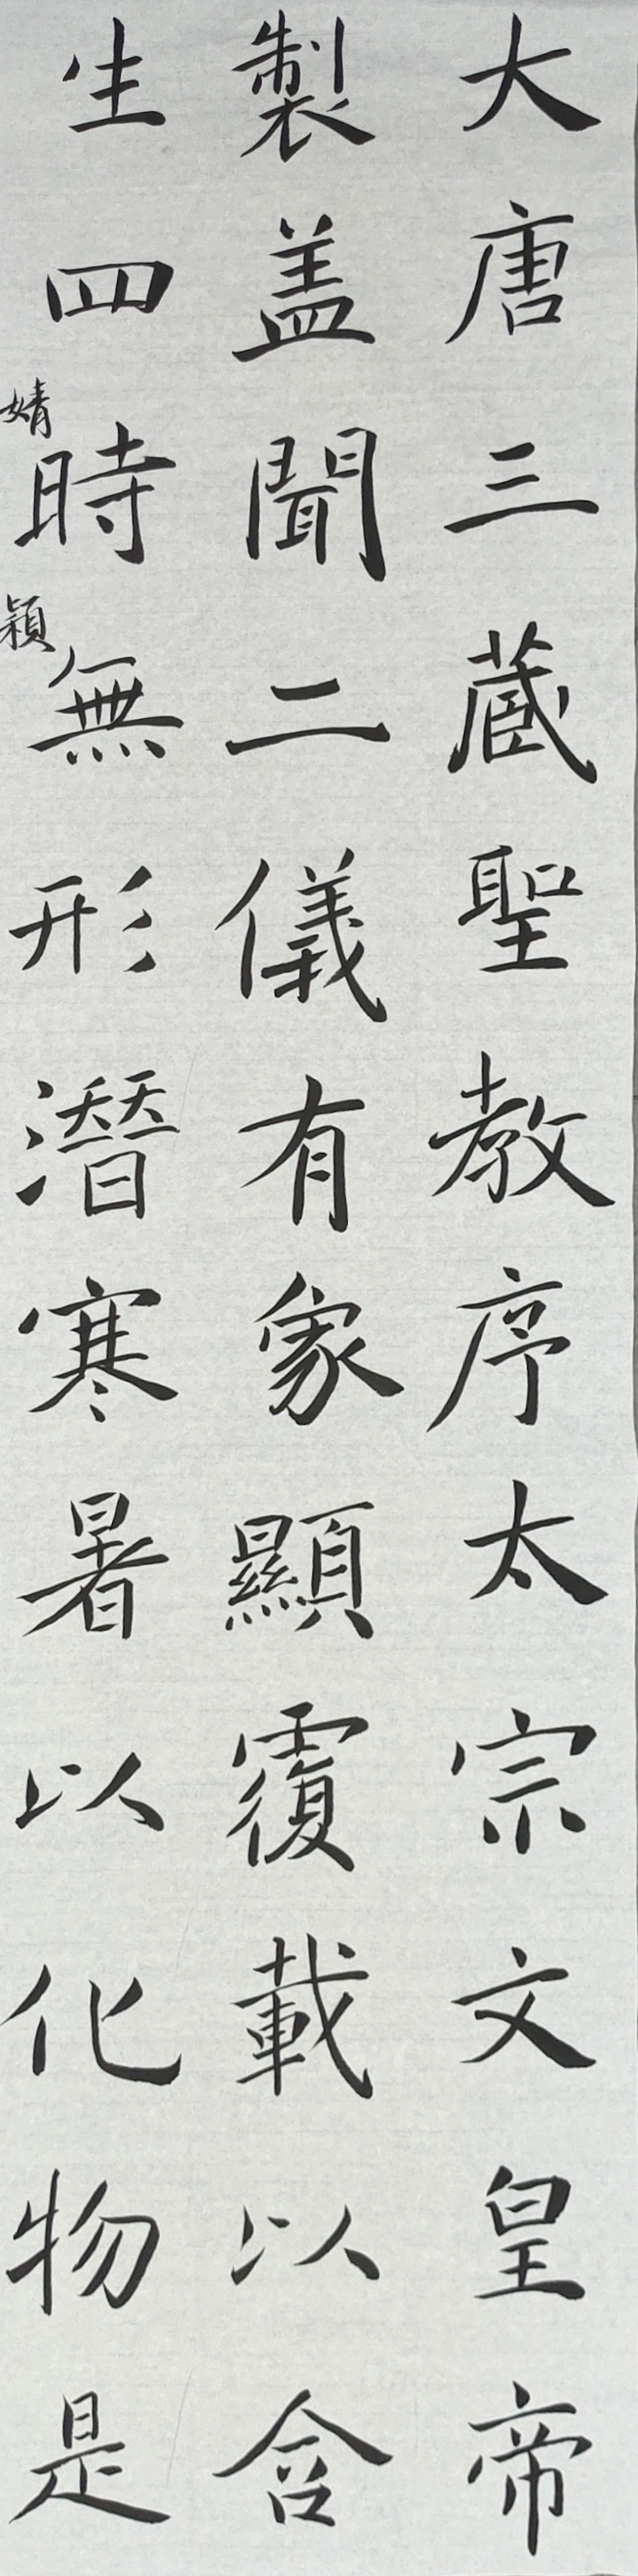 大唐三蔵聖教序太宗文皇帝
製盖聞二儀有象顯覆載以含
生四時無形潛寒暑以化物是
婧穎